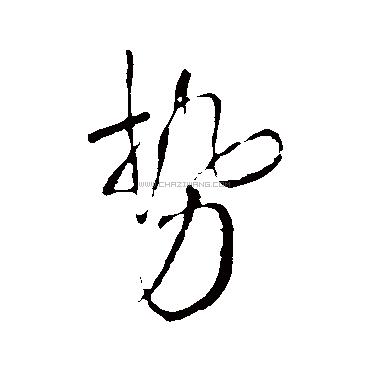 势
WWW.CHAZIWANG.COM